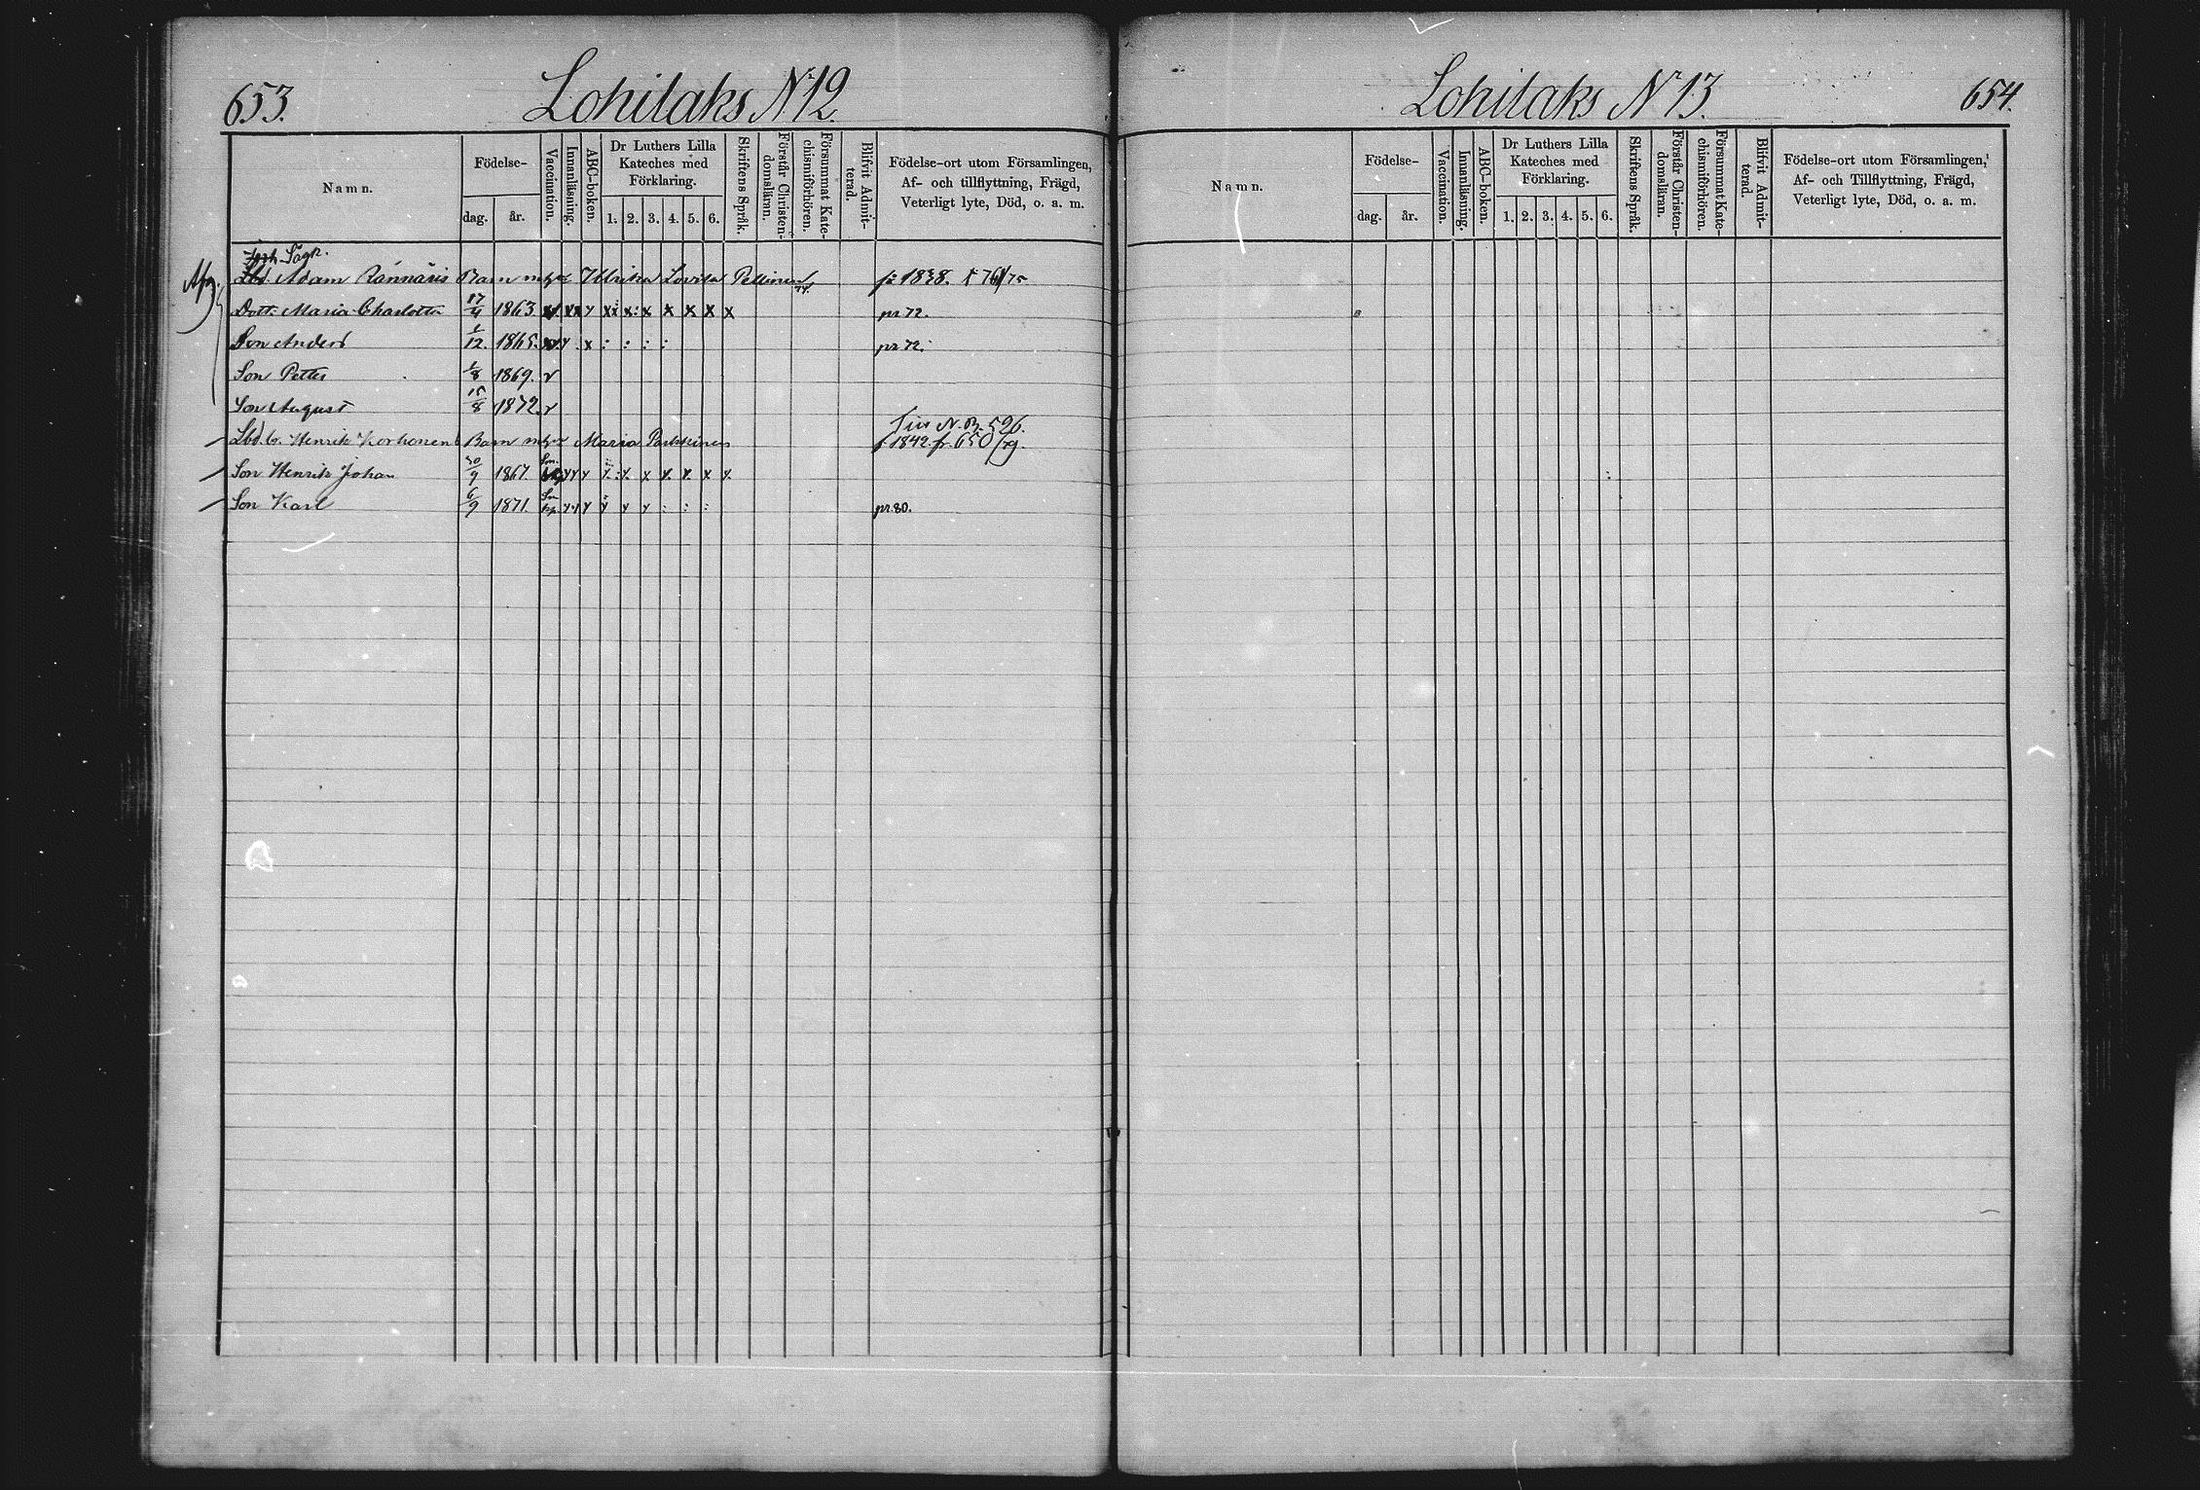 653.
Lohilaks N:12.
Namn.
Födelse-
dag.
år.
Vaccination.
Innanläsning.
ABC-boken.
Dr Luthers Lilla
Kateches med
Förklaring.
1. 2. 3. 4. 5. 6.
Skriftens Språk.
Förstår Christen-
domsläran.
Försummat Kate-
chismiförhören.
Blifvit Admit-
terad.
Födelse-ort utom Församlingen,
Af- och tillflyttning, Frägd,
Veterligt lyte, Död, o. a. m.
Adam Rännäris Barn m hust Ulrika Lovisa Pellinen
Dott. Maria Charlotta 17/4 1863. x x x x x x x pr 72.
Son Anders 1/12. 1865. x : : : : pr 72.
Son Petter 1/8 1869. v
Son August 15/8 1872. v
Henrik Korhonen Barn m hust Maria Parkkinen f 1842. fr. 650
Son Henrik Johan 30/9 1867.
Son Karl 6/9 1871. pr 80.
Lohilaks N:13.
654.
Namn.
Födelse-
dag.
år.
Vaccination.
Innanläsning.
ABC-boken.
Dr Luthers Lilla
Kateches med
Förklaring.
1. 2. 3. 4. 5. 6.
Skriftens Språk.
Förstår Christen-
domsläran.
Försummat Kate-
chismiförhören.
Blifvit Admit-
terad.
Födelse-ort utom Församlingen,
Af- och Tillflyttning, Frägd,
Veterligt lyte, Död, o. a. m.